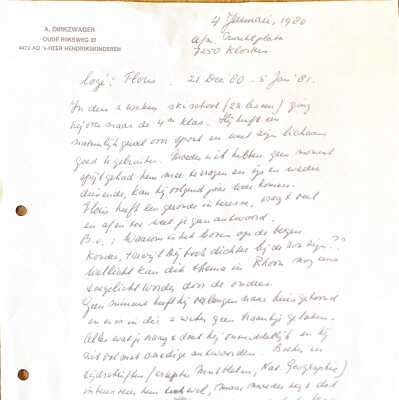 A. DIRKZWAGER
OUDE RIJKSWEG 21
4472 AD 's-HEER HENDRIKSKINDEREN
4 Januari, 1980
a/a. Duchliplatz
7250 Klosters
Logé: Floris. 21 Dec 80 - 5 Jan '81.
In deze 2 weken skischool (22 lessen) ging
hij over naar de 4de klas. Hij heeft een
natuurlijk gevoel voor sport en weet zijn lichaam
goed te gebruiken. Moeder en ik hebben geen moment
spijt gehad hem mee te vragen en ijs en weder
dienende, kan hij volgend jaar weer komen.
Floris heeft een gezonde interesse, vraagt veel
en af en toe weet je geen antwoord.
B.v.: Waarom is het boven op de bergen
kouder, terwijl hij toch dichter bij de zon zijn??
Wellicht kan dit thema in Rhoon nog eens
toegelicht worden door de ouders.
Geen minuut heeft hij verlangen naar huis gehoord
en er is in die 2 weken geen traantje gelaten.
Alles wat je vraagt doet hij onmiddellijk en hij
zit vol met aardige antwoorden. Boeken en
tijdschriften (Nat. Geographic)
interesseren hem wel, maar moeder zegt dat